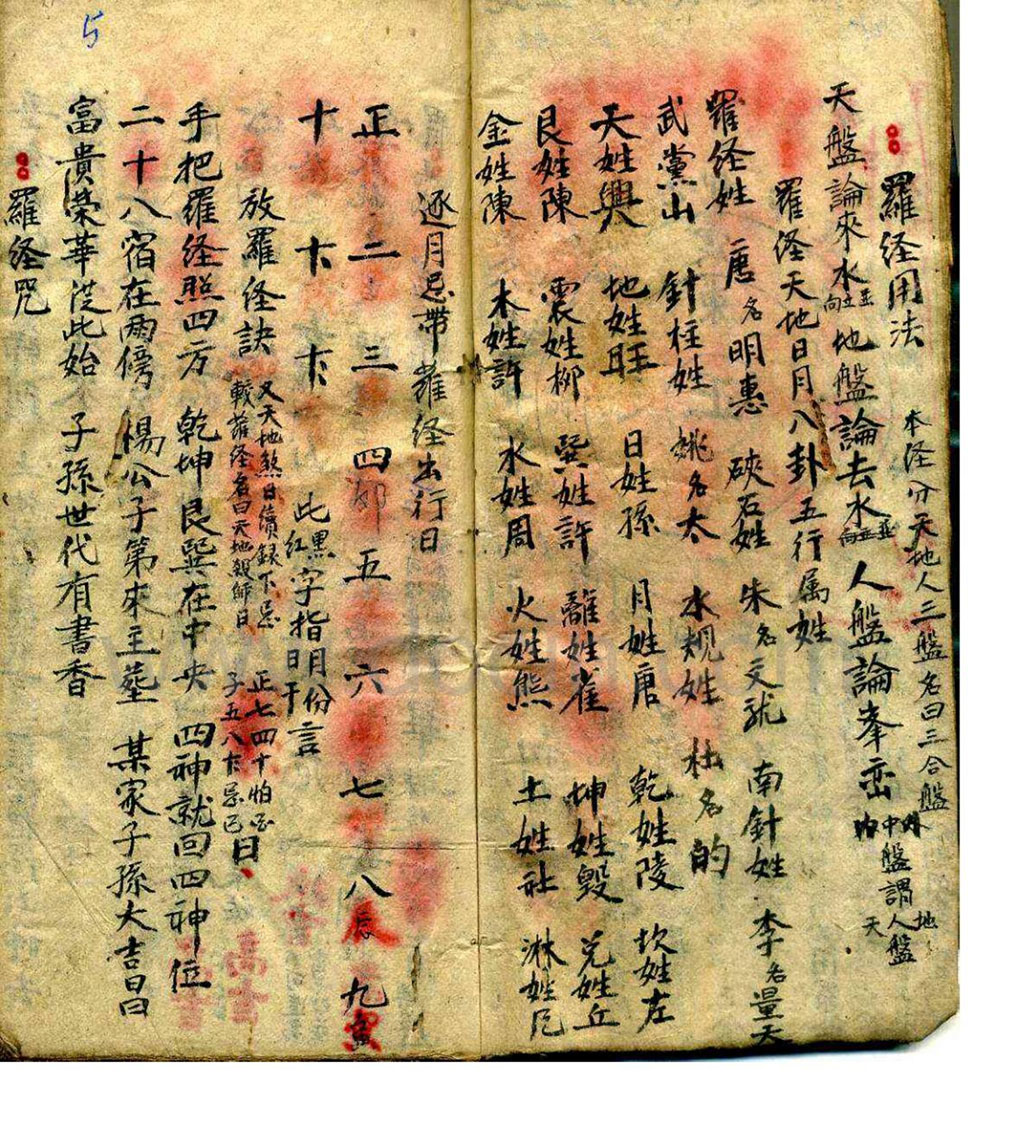 羅経用法 本経分天地人三盤名曰三合盤 外中内盤謂地人天盤
天盤論來水並立向 地盤論去水並立向 人盤論峯巒
羅経天地日月八卦五行属姓
羅経姓 唐名明惠 硤石姓 朱名文 南針姓 李名量天
武黨山 針柱姓 姚名太 水規姓 杜名的
天姓興 地姓旺 日姓孫 月姓唐 乾姓陵 坎姓左
艮姓陳 震姓柳 巽姓許 離姓雀 坤姓毀 兑姓丘
金姓陳 木姓許 水姓周 火姓熊 土姓社 淋姓
逐月忌帶羅経出行日
正 二 三 四 五 六 七 八辰 九
十 此黑字指月份言
紅 日干
放羅経訣 又天地煞日續録下忌 正七四十怕
較羅経名曰天地 師日 子五八 忌 日
手把羅経照四方 乾坤艮巽在中央 四神就回四神位
二十八宿在兩傍 楊公子第來主塟 某家子孫大吉昌
富貴榮華從此始 子孫世代有書香
羅経咒
5